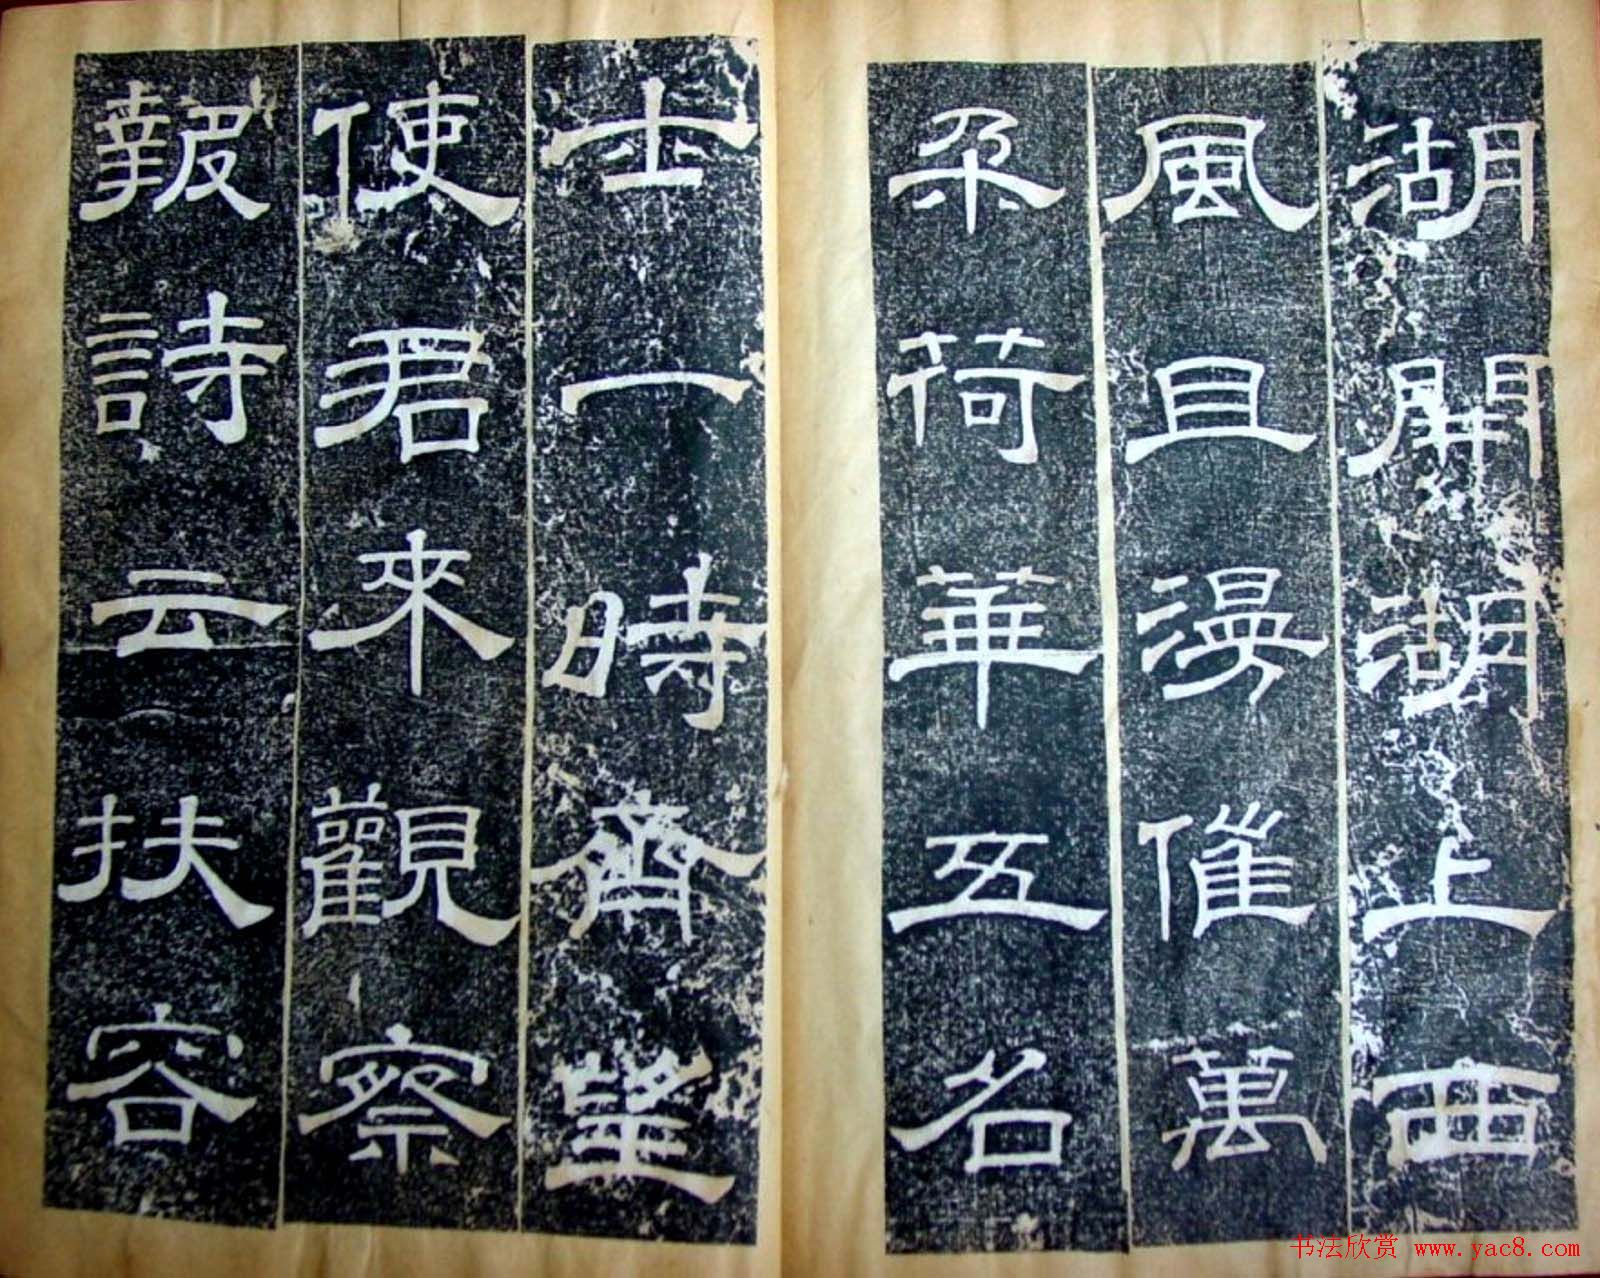 湖開湖上西
風且漫催萬
朶荷華五名
士一時齊望
使君來觀察
報詩云扶容
书法欣赏 www.yac8.com